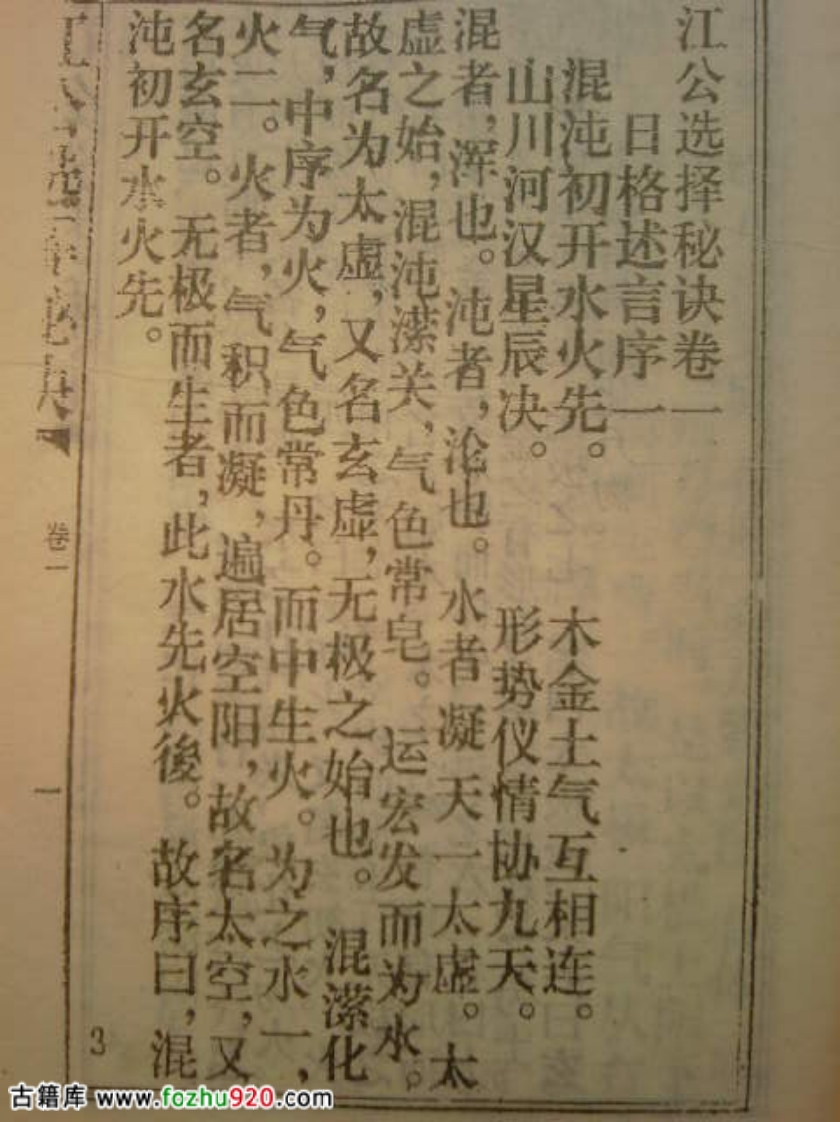 江公选择秘诀卷一
日格述言序一
混沌初开水火先。 木金土气互相连。
山川河汉星辰决。 形势仪情协九天。
混者，浑也。沌者，沦也。水者凝天一太虚。太
虚之始，混沌潆关，气色常皂。运宏发而为水。
故名为太虚，又名玄虚，无极之始也。混潆化
气，中序为火，气色常丹。而中生火。为之水一，
火二。火者，气积而凝，遍居空阳，故名太空，又
名玄空。无极而生者，此水先火後。故序曰，混
沌初开水火先。
卷一
一
3
古籍库 www.fozhu920.com